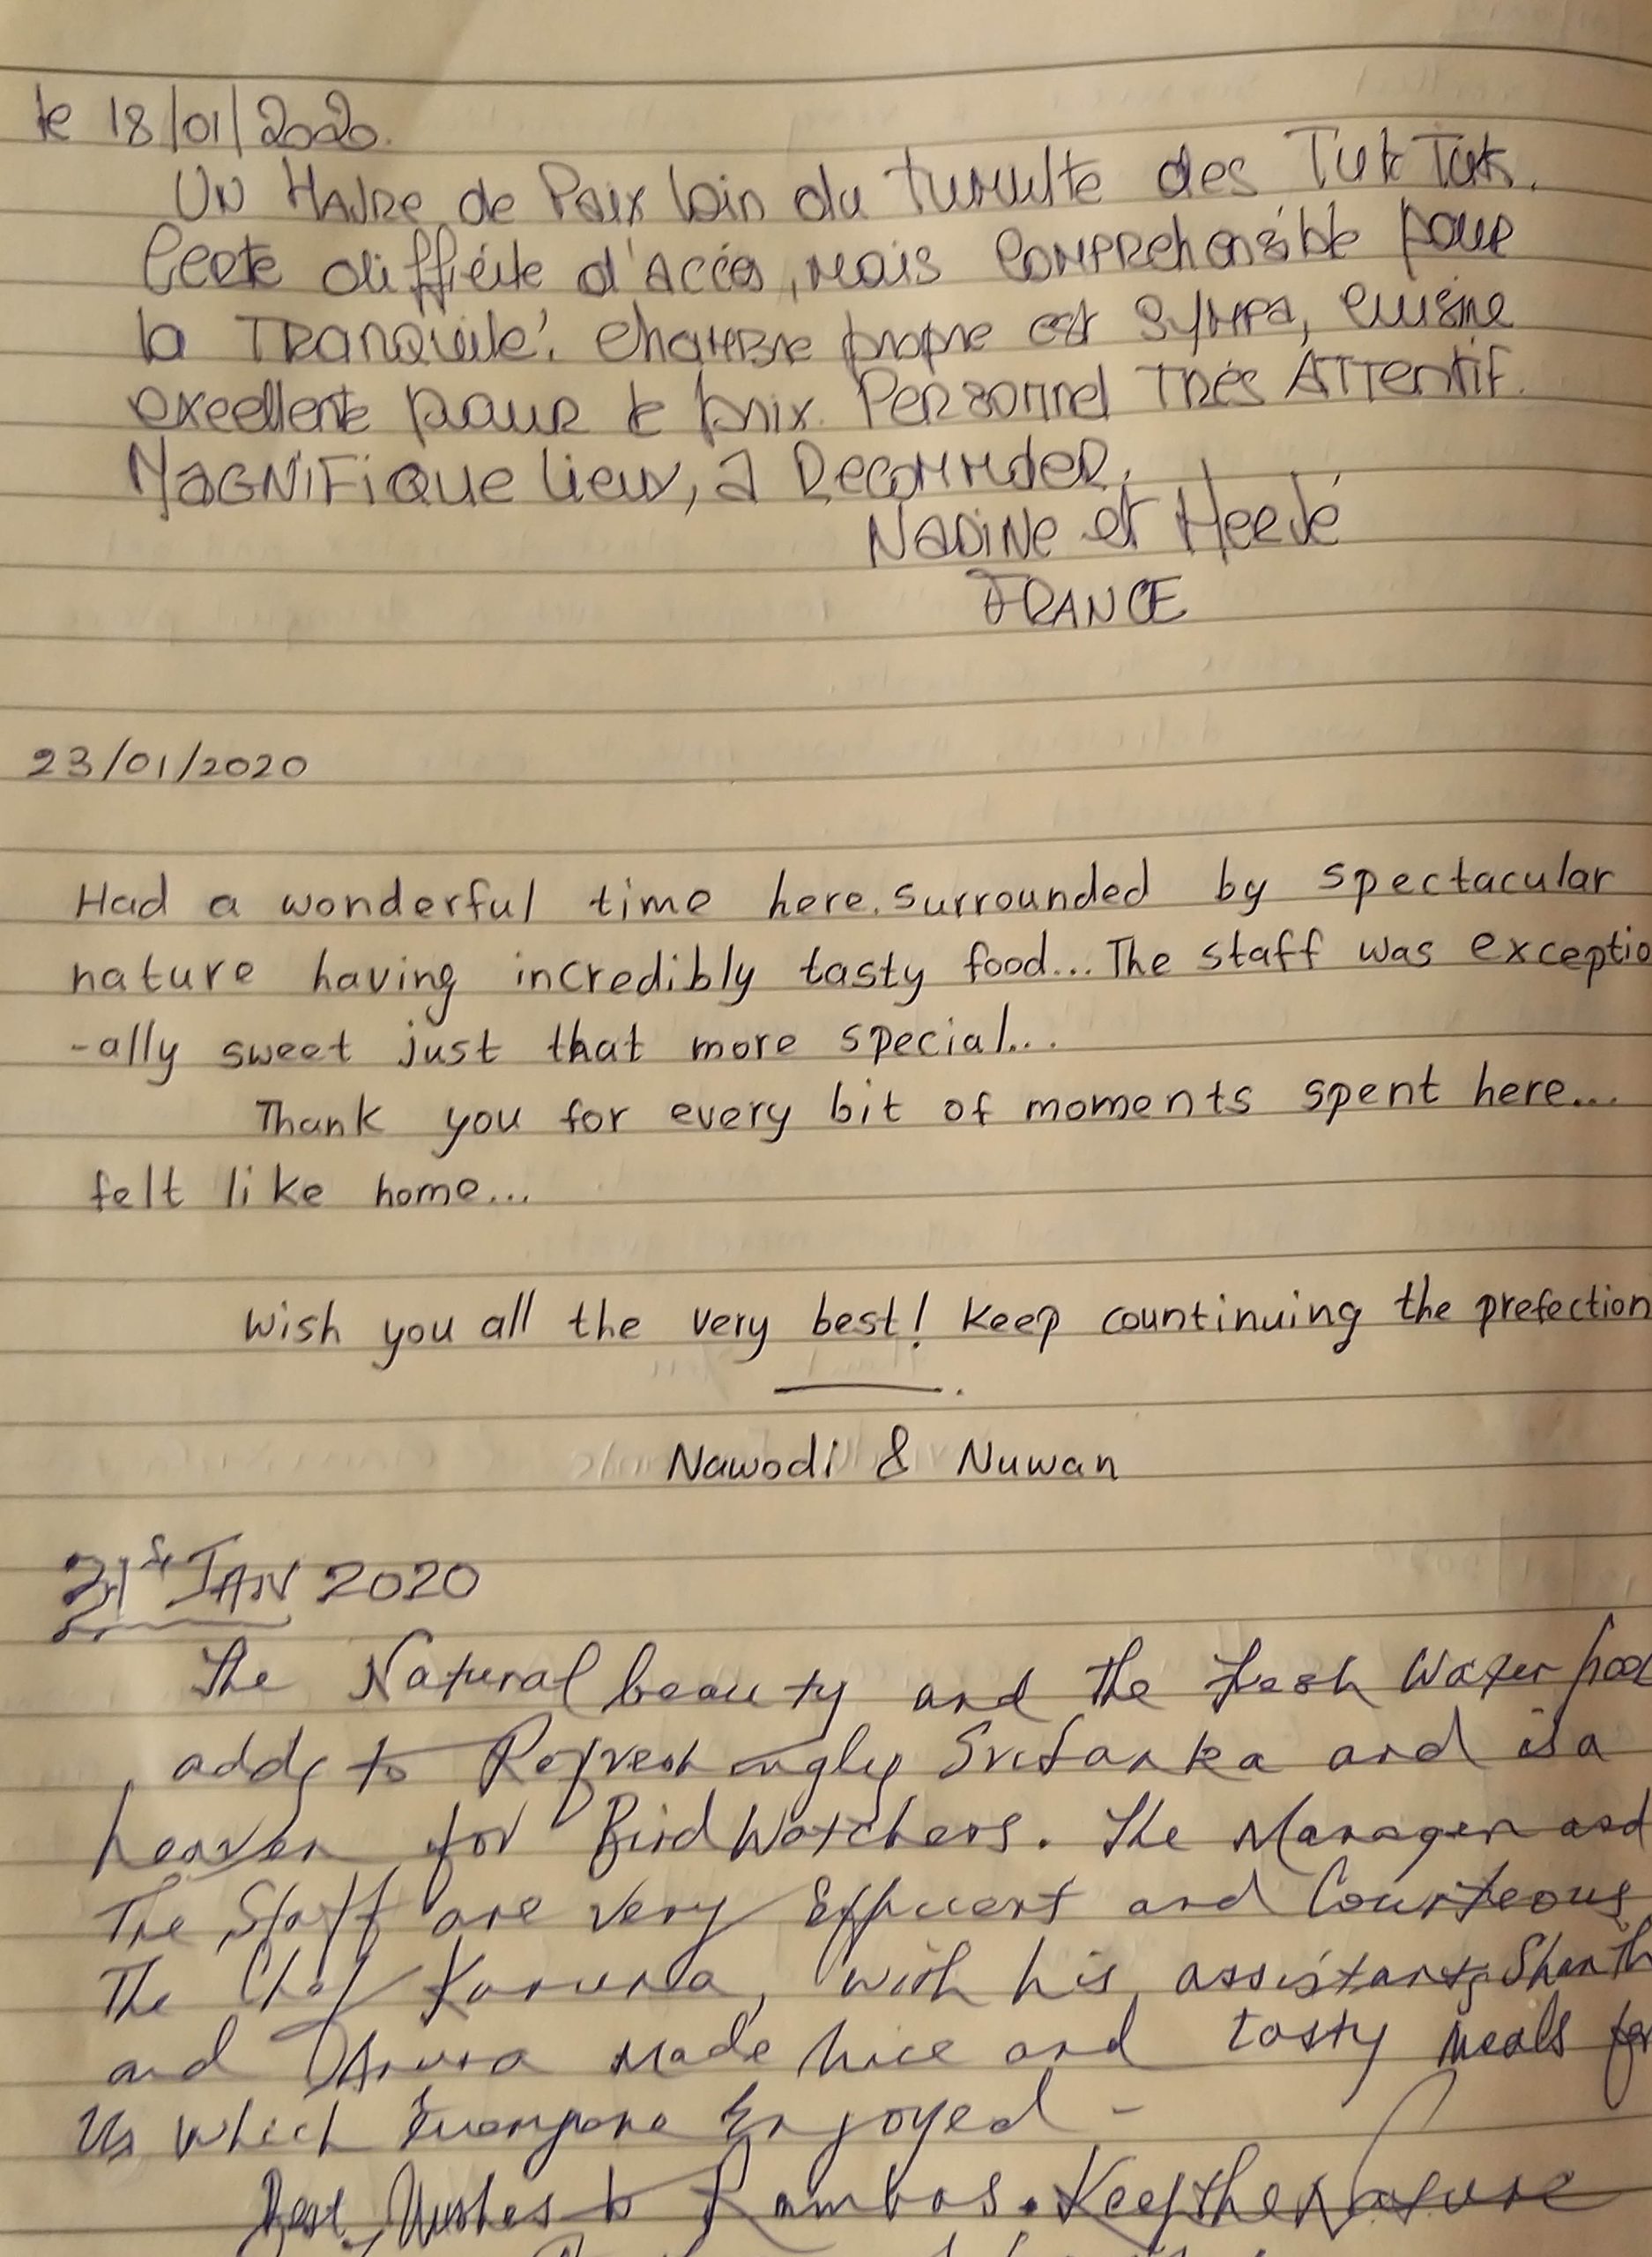 le 18/01/2020.
UN HAVRE de Paix loin du tumulte des Tuk Tuk.
Certe difficile d'Accès, mais comprehensible pour
la TRANQuilité. Chambre propre est Sympa, cuisine
excellente pour le prix. Personnel Très Attentif.
MAGNIFIQUE lieux, à Recommder.
NADINE et Hervé
FRANCE
23/01/2020
Had a wonderful time here. surrounded by spectacular
nature having incredibly tasty food... The staff was exceptio
-ally sweet just that more special...
Thank you for every bit of moments spent here...
felt like home...
Wish you all the very best! Keep countinuing the prefection
Nawodi & Nuwan
JAN 2020
The Natural beauty and the fresh Water pool
adds to Refreshingly Srilanka and is a
heaven for Bird Watchers. The Manager and
The Staff are very Efficient and Courteous
The Chef Karuna, with his assistants Shanth
and Anura Made nice and tasty meals for
Us which Everyone Enjoyed -
Best Wishes to Rambas. Keep the Nature